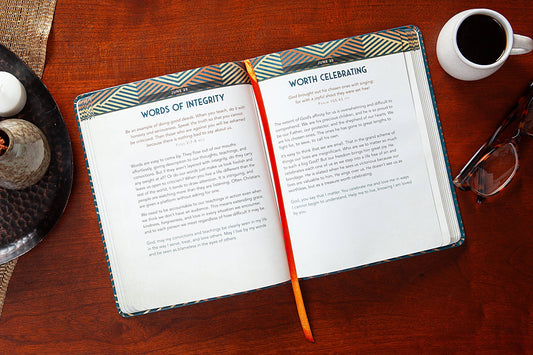 JUNE 28
WORDS OF INTEGRITY
Be an example of doing good deeds. When you teach, do it with
honesty and seriousness. Speak the truth so that you cannot
be criticized. Then those who are against you will be ashamed
because there is nothing bad to say about us.
Words are easy to come by. They flow out of our mouths
effortlessly, giving expression to our thoughts, teachings, and
emotions. But if they aren't layered with integrity, do they carry
any weight at all? Or do our words just make us look foolish and
the rest of the world, it tends to draw
people are watching more than they are listening. Often Christians
are given a platform without asking for one.
We need to be accountable to our teachings in action even when
we think we don't have an audience. This means extending grace,
kindness, forgiveness, and love in every situation we encounter
and to each person we meet regardless of how difficult it may be.
God, may my convictions and teachings be clearly seen in my life
in the way I serve, treat, and love others. May I live by my words
and be seen as blameless in the eyes of others.
JUNE 29
WORTH CELEBRATING
God brought out his chosen ones with singing;
for with a joyful shout they were set free!
The extent of God's affinity for us is overwhelming and difficult to
comprehend. We are his precious children, and he is so proud to
be our Father, our protector, and the shepherd of our hearts. We
are his chosen ones. The ones he has gone to great lengths to
fight for, to save, to call his own.
It's easy to think that we are small. That in the grand scheme of
things our lives are insignificant. Who are we to matter so much
to such a big God? But our freedom brings him great joy. He
celebrates each one of us as we step into a life free of sin and
bondage. He is elated when he sees us victorious because our
lives are valuable to him. My sings over us. He doesn't see us as
worthless, but as a treasure worth celebrating.
God, you say that I matter. You celebrate me and love me in ways
I cannot begin to understand. Help me to live, knowing I am loved
by you.